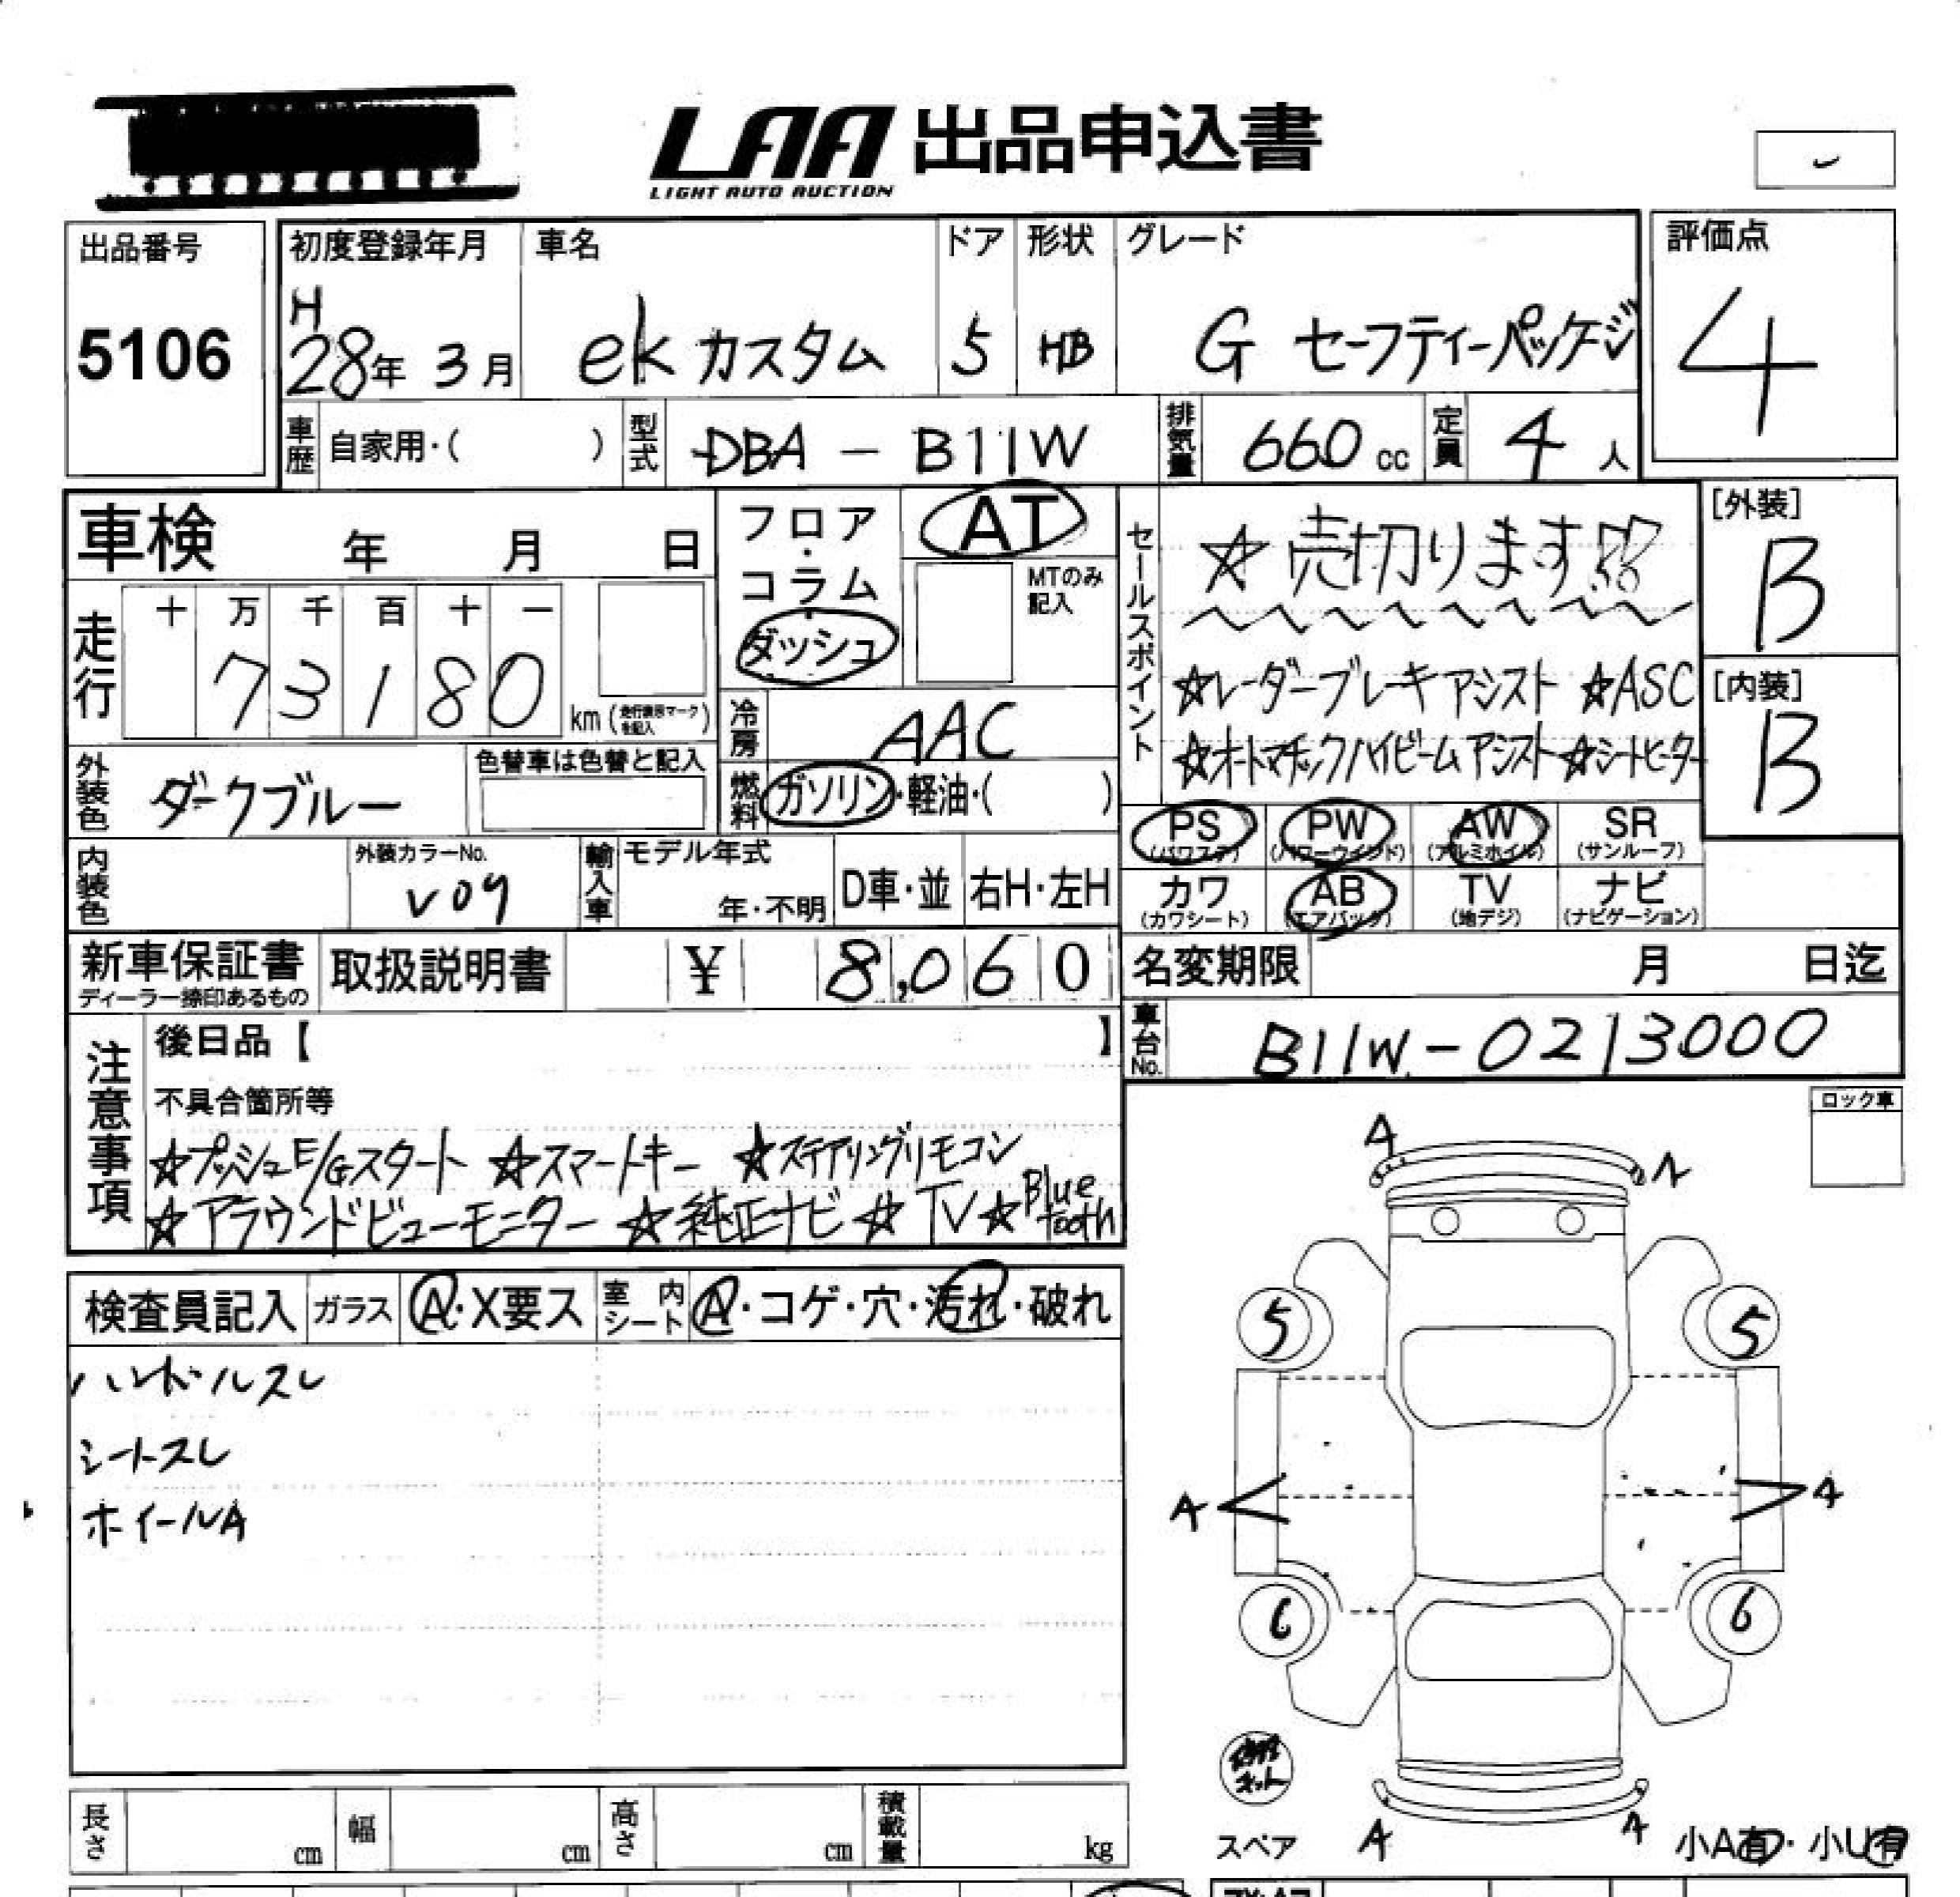 LAA 出品申込書
LIGHT AUTO AUCTION
出品番号
5106
初度登録年月
H
28年 3月
車名
ekカスタム
ドア
5
形状
HB
グレード
G セーフティーパッケージ
評価点
4
車歴 自家用・( )
型式 DBA-B11W
排気量 660cc
定員 4人
車検 年 月 日
フロア・コラム・ダッシュ
AT
MTのみ記入
セールスポイント
☆売切ります!!
☆レーダーブレーキアシスト ☆ASC
☆オートマチックハイビームアシスト☆シートヒーター
[外装]
B
[内装]
B
走行
十 万 千 百 十 一
7 3 1 8 0 km (走行表示マークを記入)
冷房 AAC
外装色 ダークブルー
色替車は色替と記入
燃料 ガソリン・軽油・( )
PS (パワステ) PW (パワーウインド) AW (アルミホイル) SR (サンルーフ)
カワ (カワシート) AB (エアバック) TV (地デジ) ナビ (ナビゲーション)
内装色
外装カラーNo.
V09
輸入車 モデル年式 年・不明
D車・並 右H・左H
新車保証書
ディーラー捺印あるもの
取扱説明書
¥ 8,060
名変期限 月 日迄
車台No. B11W-0213000
注意事項
後日品【 】
不具合箇所等
☆プッシュE/Gスタート ☆スマートキー ☆ステアリングリモコン
☆アラウンドビューモニター ☆純正ナビ☆TV☆Bluetooth
ロック車
検査員記入 ガラス A・X要ス 室内シート A・コゲ・穴・汚れ・破れ
ハンドルスレ
シートスレ
ホイールA
A
5 5
A A
6 6
スペア A A 小A有・小U有
長さ cm 幅 cm 高さ cm 積載量 kg